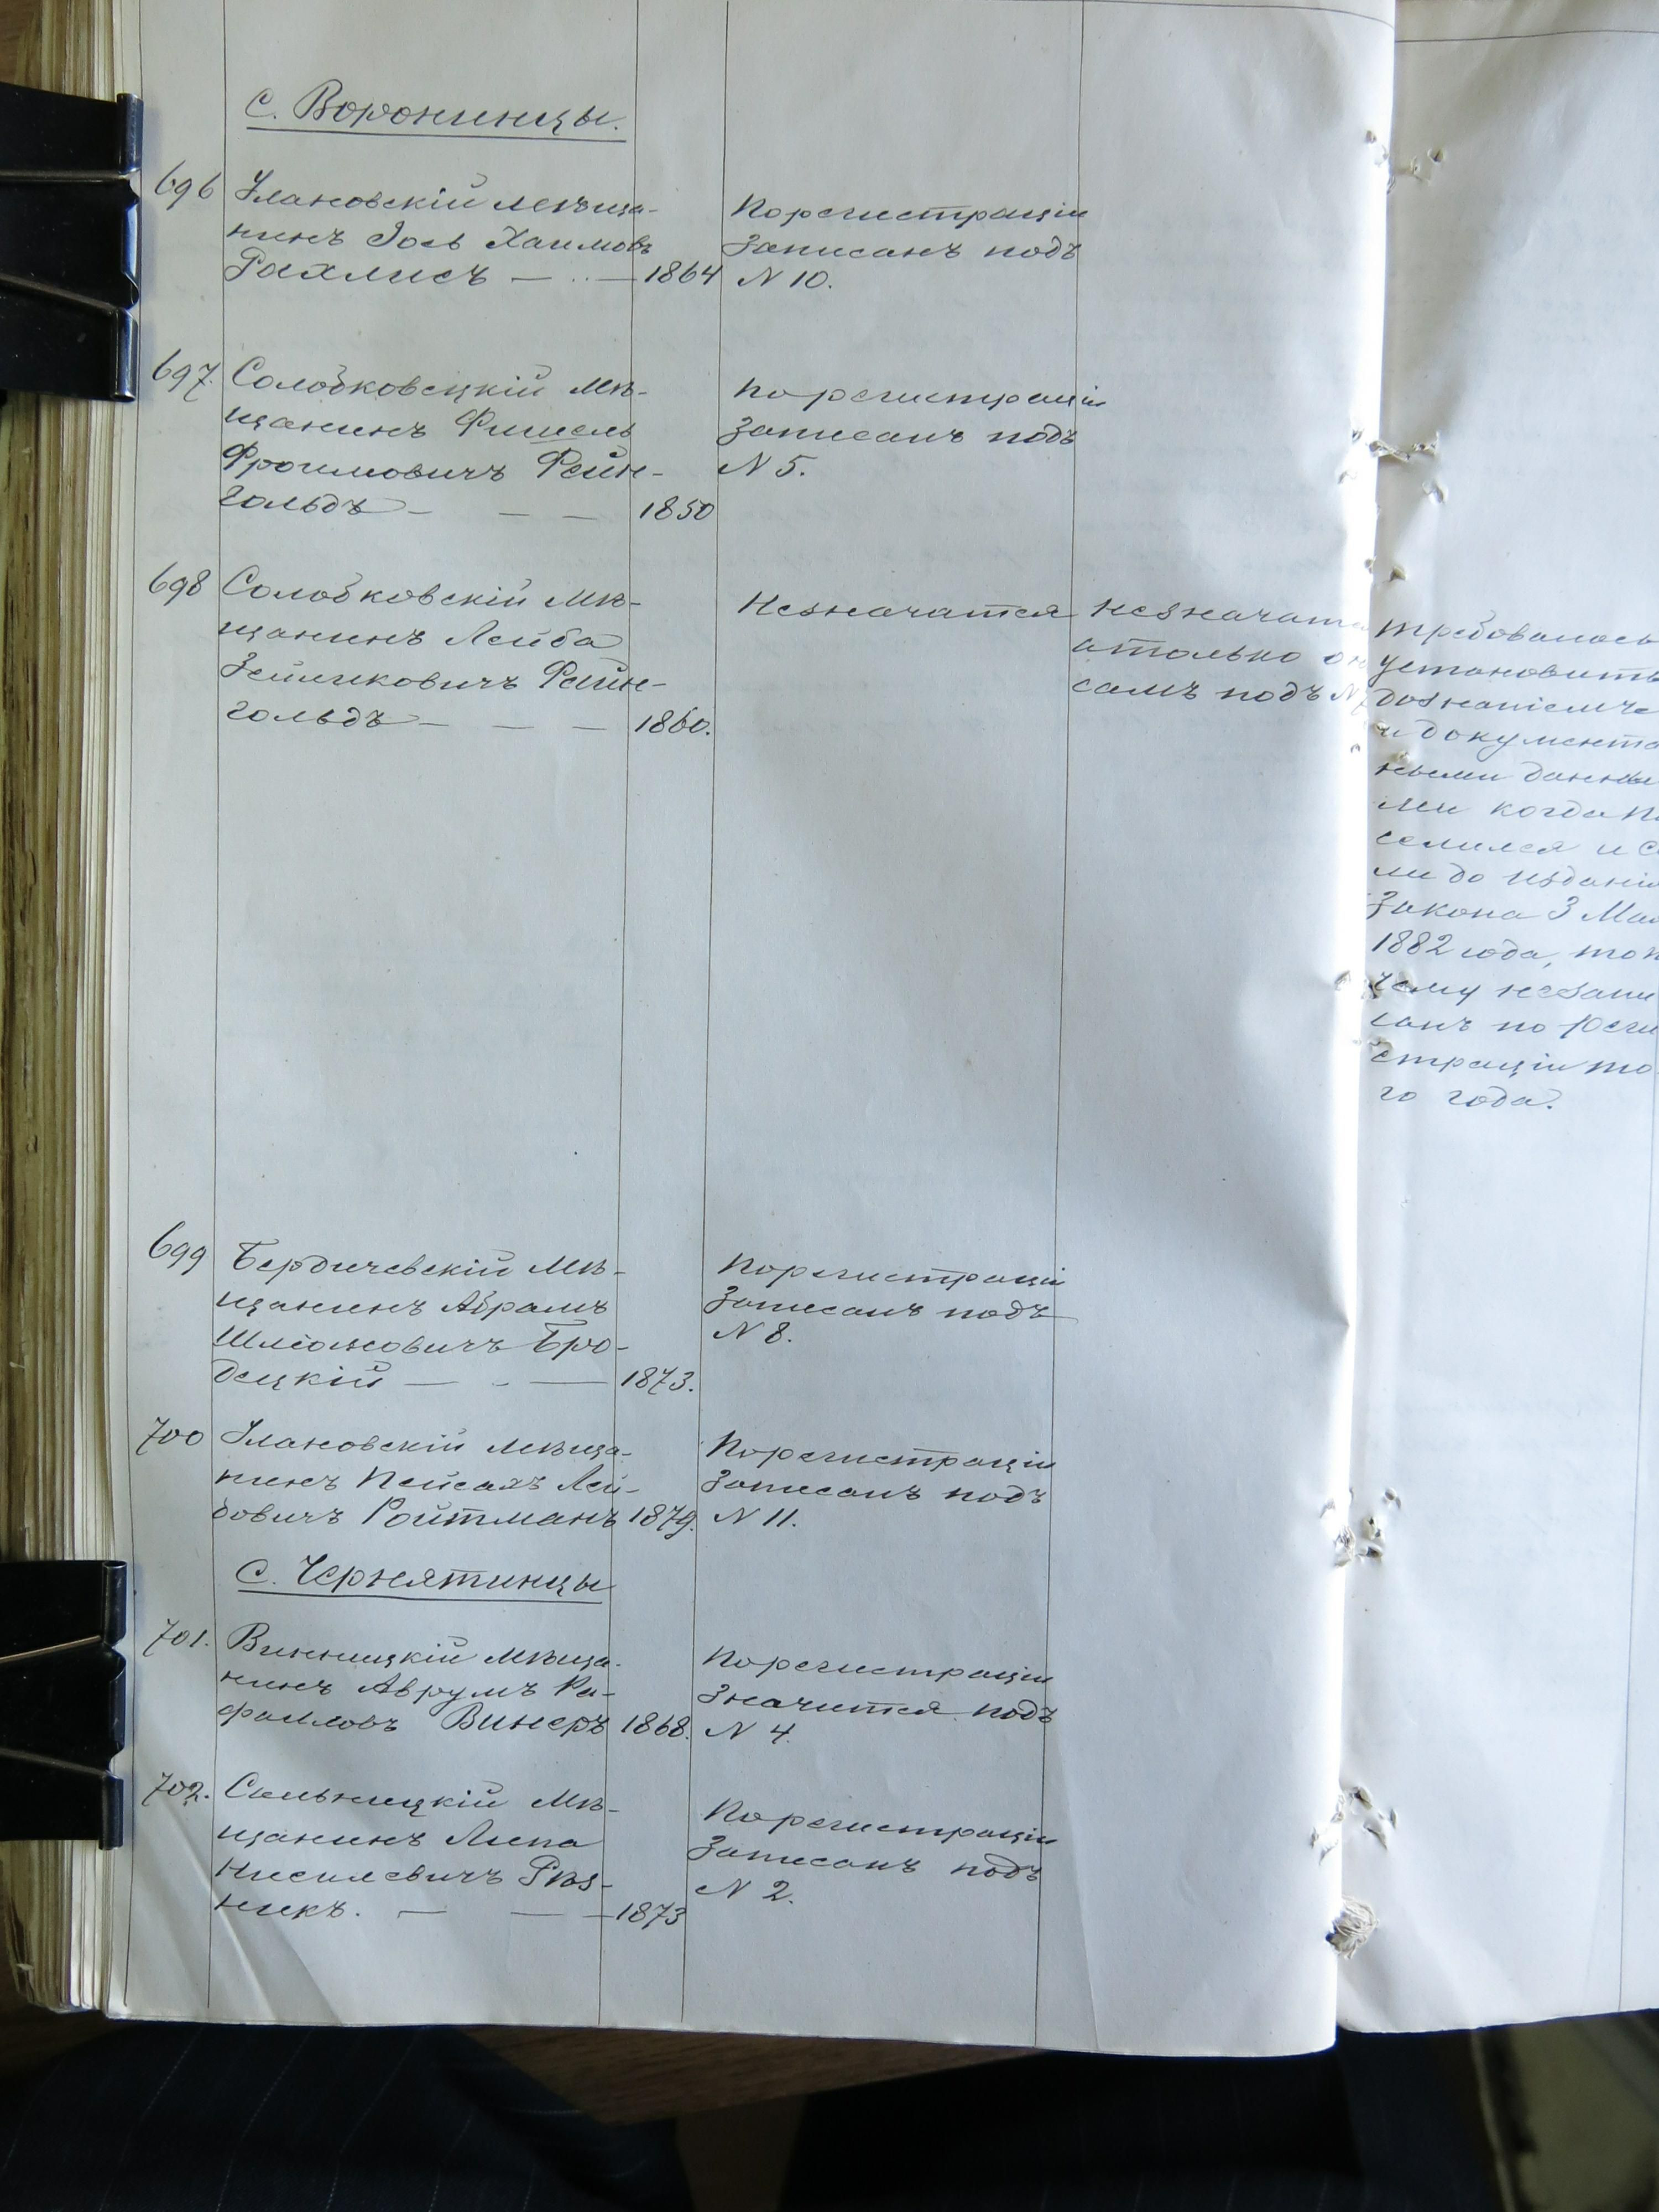 С. Воронинцы.
696 Улановскій мѣща-
нинъ Іось Хаимовъ
Рахлисъ — — 1864
По регистраціи
записанъ подъ
N 10.
697. Солобковецкій мѣ-
щанинъ Фишель
Фроимовичъ Фейн-
гольдъ — — — 1850
По регистраціи
записанъ подъ
N 5.
698 Солобковскій мѣ-
щанинъ Лейба
Зейликовичъ Фейн-
гольдъ — — — 1860.
Незначатся
незначат
атолько он
самъ подъ N
требовалось
установить
дознаніемъ
и документа
ными данны
ми когда по
селился и
ли до изданія
Закона 3 Мая
1882 года, то
чему незапи
санъ по реги
страціи то
го года.
699 Бердичевскій мѣ-
щанинъ Абрамъ
Шліомовичъ Бро-
децкій — - — 1873.
По регистраціи
записанъ подъ
N 8.
700 Улановскій мѣща-
нинъ Пейсахъ Лей-
бовичъ Ройтманъ 1879.
По регистраціи
записанъ подъ
N 11.
С. Чернятинцы
701. Винницкій мѣща-
нинъ Аврумъ Ра-
фаиловъ Винеръ 1868.
По регистраціи
значится подъ
N 4.
702. Сальницкій мѣ-
щанинъ Липа
Нисилевичъ Рѣз-
никъ. — — — 1873
По регистраціи
записанъ подъ
N 2.